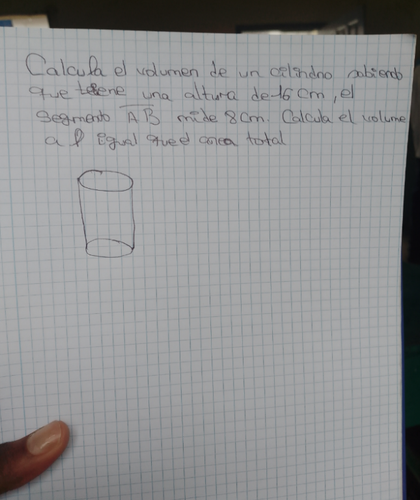 Calcula el volumen de un cilindro sabiendo
que tiene una altura de 16 cm, el
segmento AB mide 8 cm. Calcula el volume
al igual que el area total